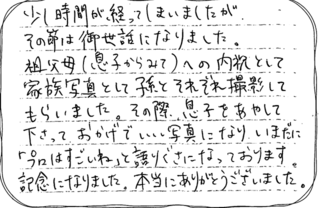 少し時間が経ってしまいましたが
その節は御世話になりました。
祖父母(息子からみて)への内祝として
家族写真として孫とそれぞれ撮影して
もらいました。その際、息子をあやして
下さって おかげでいい写真になり、いまだに
「プロはすごいね」って語りぐさになっております。
記念になりました。本当にありがとうございました。